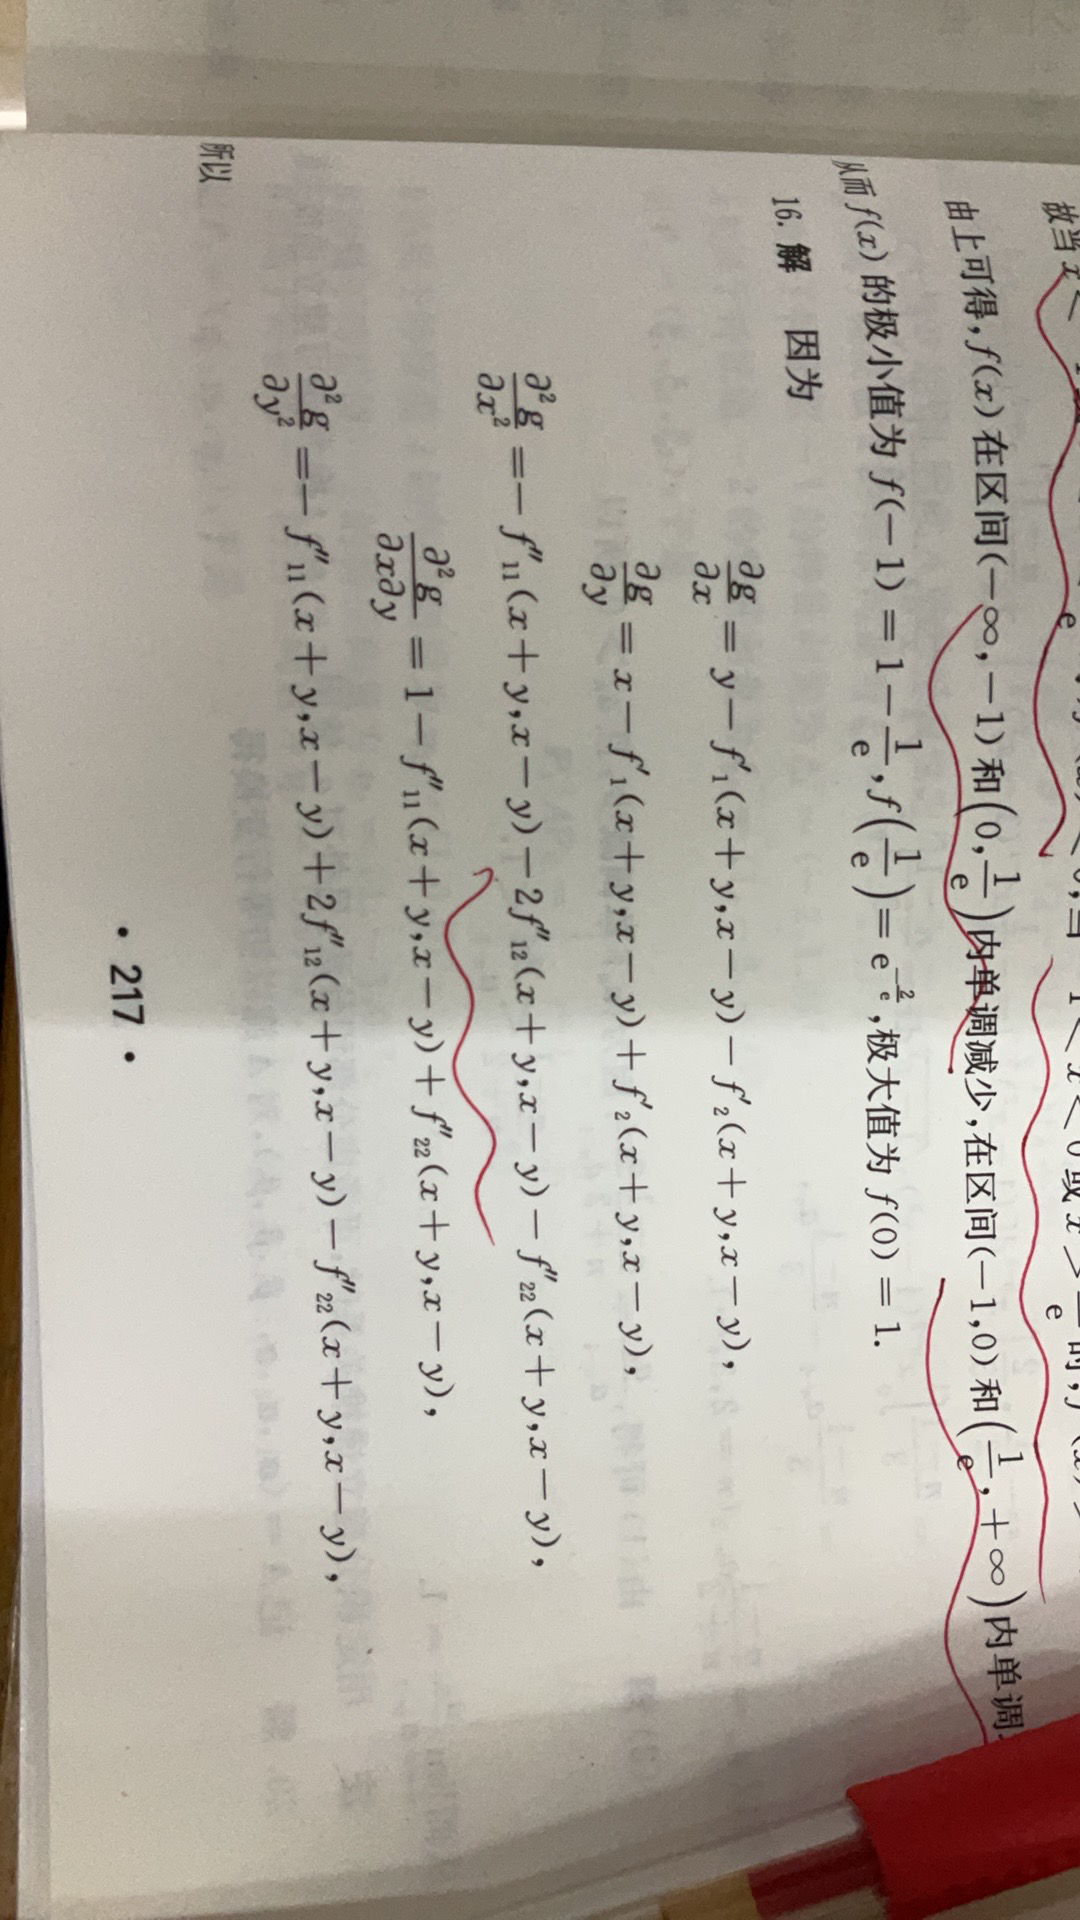 故当 x <
e
由上可得,f(x) 在区间(-∞,-1) 和(0,1/e)内单调减少,在区间(-1,0) 和(1/e,+∞)内单调
从而 f(x) 的极小值为 f(-1) = 1 - 1/e, f(1/e) = e^{-2/e}, 极大值为 f(0) = 1.
16. 解 因为
∂g/∂x = y - f′₁(x+y,x-y) - f′₂(x+y,x-y),
∂g/∂y = x - f′₁(x+y,x-y) + f′₂(x+y,x-y),
∂²g/∂x² = - f″₁₁(x+y,x-y) - 2f″₁₂(x+y,x-y) - f″₂₂(x+y,x-y),
∂²g/∂x∂y = 1 - f″₁₁(x+y,x-y) + f″₂₂(x+y,x-y),
∂²g/∂y² = - f″₁₁(x+y,x-y) + 2f″₁₂(x+y,x-y) - f″₂₂(x+y,x-y),
所以
· 217 ·